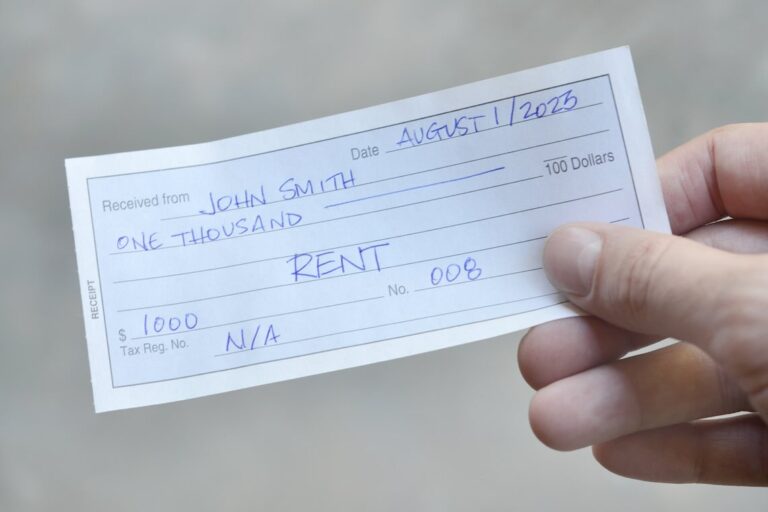 Date AUGUST 1/2025
Received from JOHN SMITH
ONE THOUSAND —— 100 Dollars
RENT
$ 1000 No. 008
Tax Reg. No. N/A
RECEIPT